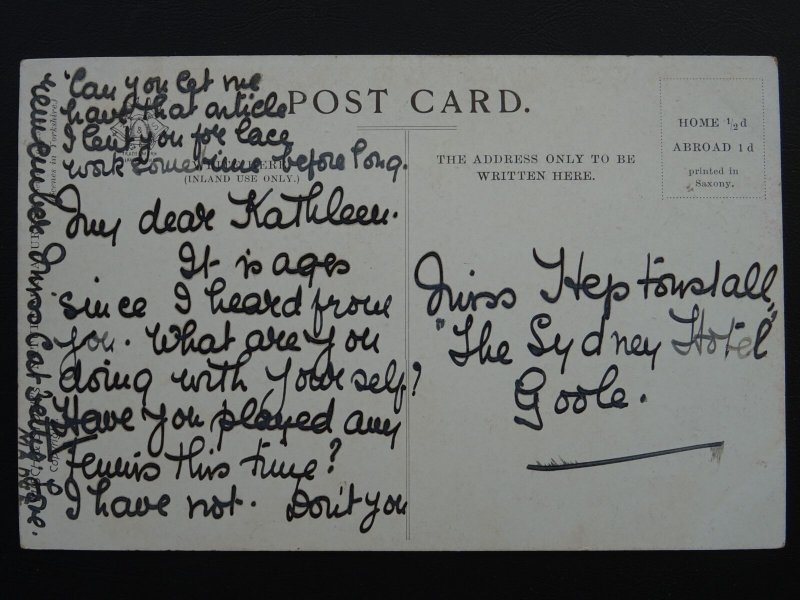 "Can you let me
have that article
I lent you for lacy
work sometime before long.
POST CARD.
(INLAND USE ONLY.)
My dear Kathleen.
It is ages
since I heard from
you. What are you
doing with yourself?
Have you played any
Tennis this time?
I have not. Don't you
remember Miss
love.
THE ADDRESS ONLY TO BE
WRITTEN HERE.
HOME ½d
ABROAD 1d
printed in
Saxony.
Miss Heptonstall,
"The Sydney Hotel"
Goole.